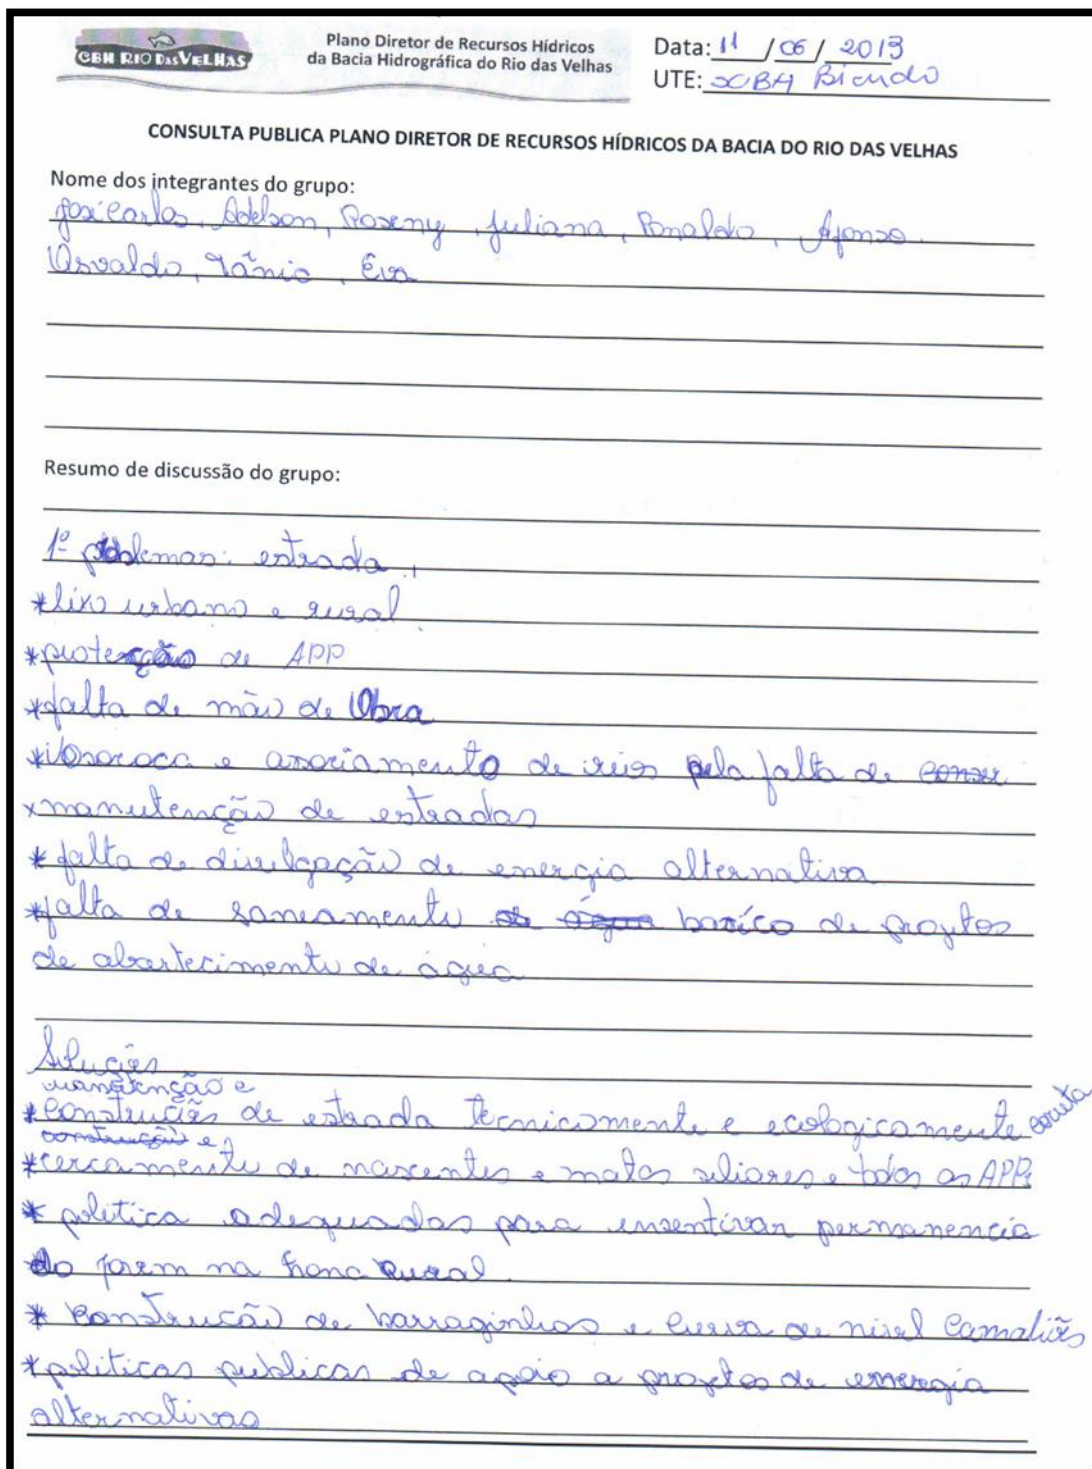 CBH RIO DAS VELHAS
Plano Diretor de Recursos Hídricos
da Bacia Hidrográfica do Rio das Velhas
Data: 11 / 06 / 2013
UTE: SCBH Bicudo
CONSULTA PUBLICA PLANO DIRETOR DE RECURSOS HÍDRICOS DA BACIA DO RIO DAS VELHAS
Nome dos integrantes do grupo:
José Carlos, Adelson, Roseny, Juliana, Ronaldo, Afonso
Osvaldo, Tânia, Eva
Resumo de discussão do grupo:
1º problemas: estrada,
*lixo urbano e rural
*proteção de APP
*falta de mão de Obra
*vosoroca e assoriamento de rios pela falta de conser
*manutenção de estradas
* falta de divulgação de energia alternativa
*falta de saneamento de água basico de projetos
de abastecimento de água
Soluções
manutenção e
*Construções de estrada tecnicamente e ecologicamente correta
construção e
*cercamento de nascentes e matas siliares e todos as APPs
* politica adequadas para insentivar permanencia
do jovem na zona Rural.
* Construção de barraginhas e Curva de nivel Camaliões
*politicas publicas de apoio a projetos de energia
alternativas